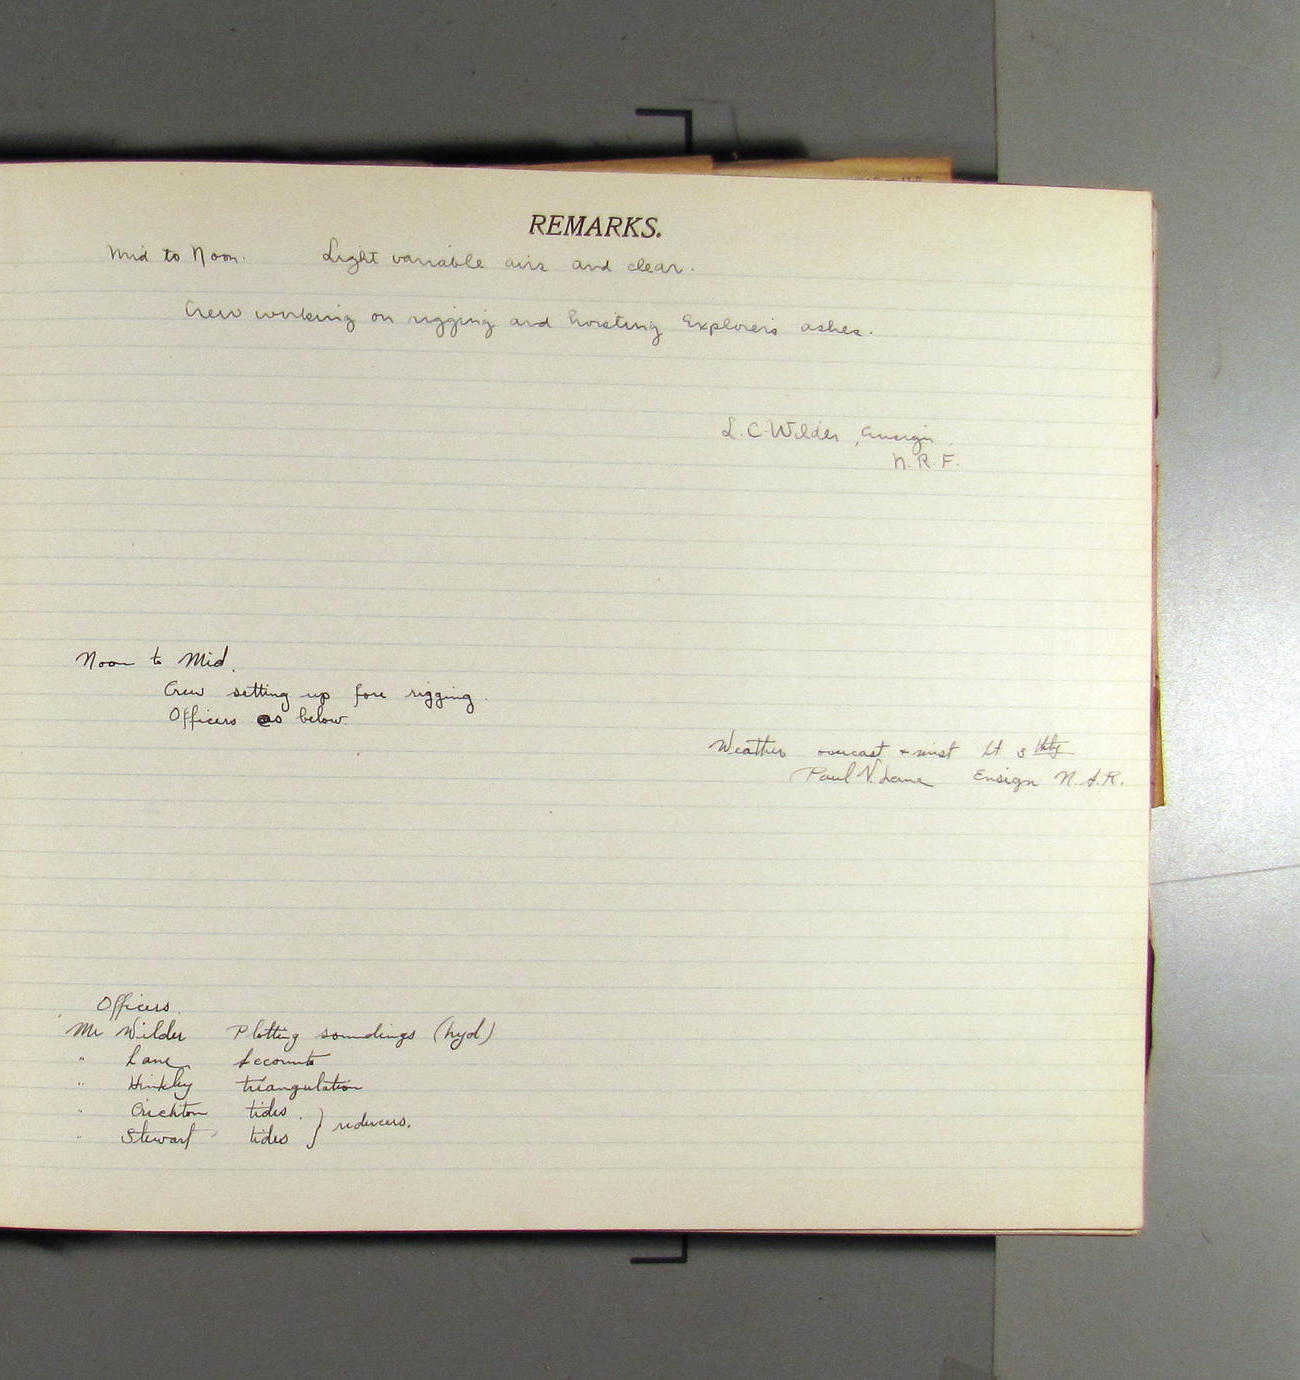 REMARKS.
Mid to Noon. Light variable airs and clear.
Crew working on rigging and hoisting Explorer's ashes.
L. C. Wilder, Ensign
N. R. F.
Noon to Mid.
Crew setting up fore rigging.
Officers as below.
Weather overcast + mist Lt S
Paul V. Lane Ensign N.
Officers.
Mr Wilder Plotting soundings (hyd)
" Lane Accounts
" Hinkley triangulation
" Crichton tides } reducers.
" Stewart tides